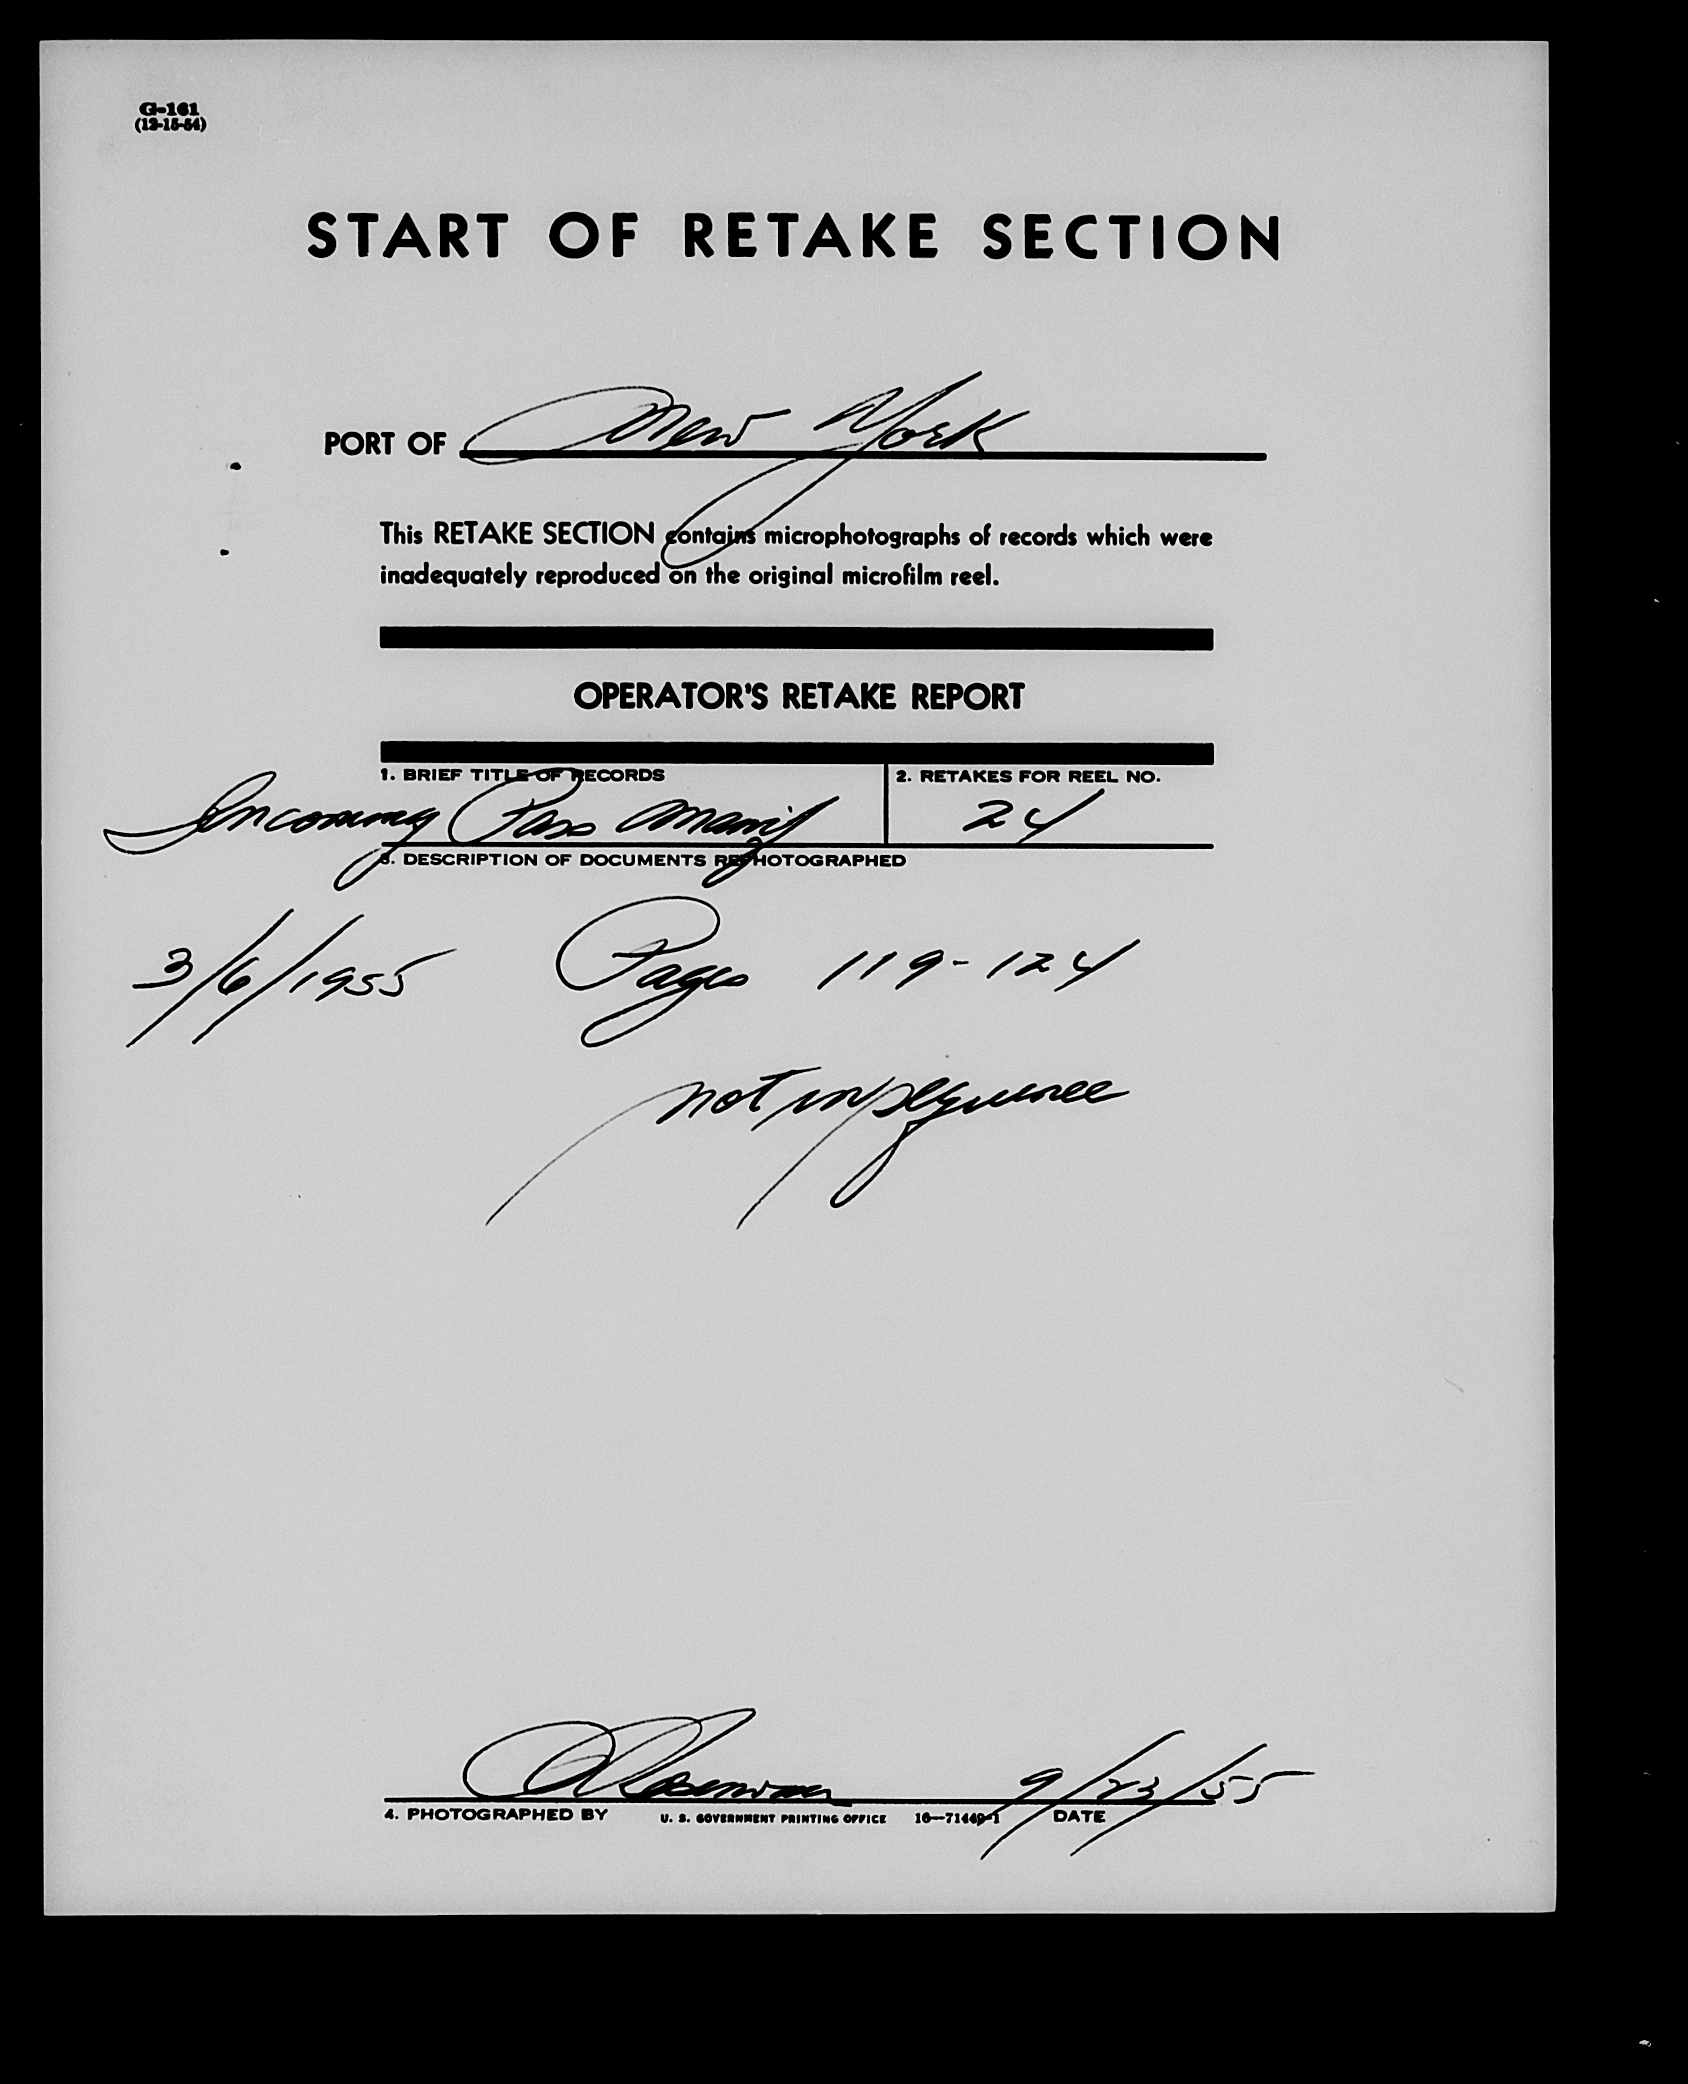 G-161
(12-15-54)
START OF RETAKE SECTION
PORT OF New York
This RETAKE SECTION contains microphotographs of records which were
inadequately reproduced on the original microfilm reel.
OPERATOR'S RETAKE REPORT
1. BRIEF TITLE OF RECORDS
Incoming Pass Manif
2. RETAKES FOR REEL NO.
24
3. DESCRIPTION OF DOCUMENTS REPHOTOGRAPHED
3/6/1955 Pages 119-124
not in sequence
9/23/55
4. PHOTOGRAPHED BY U. S. GOVERNMENT PRINTING OFFICE 16—71449-1 DATE